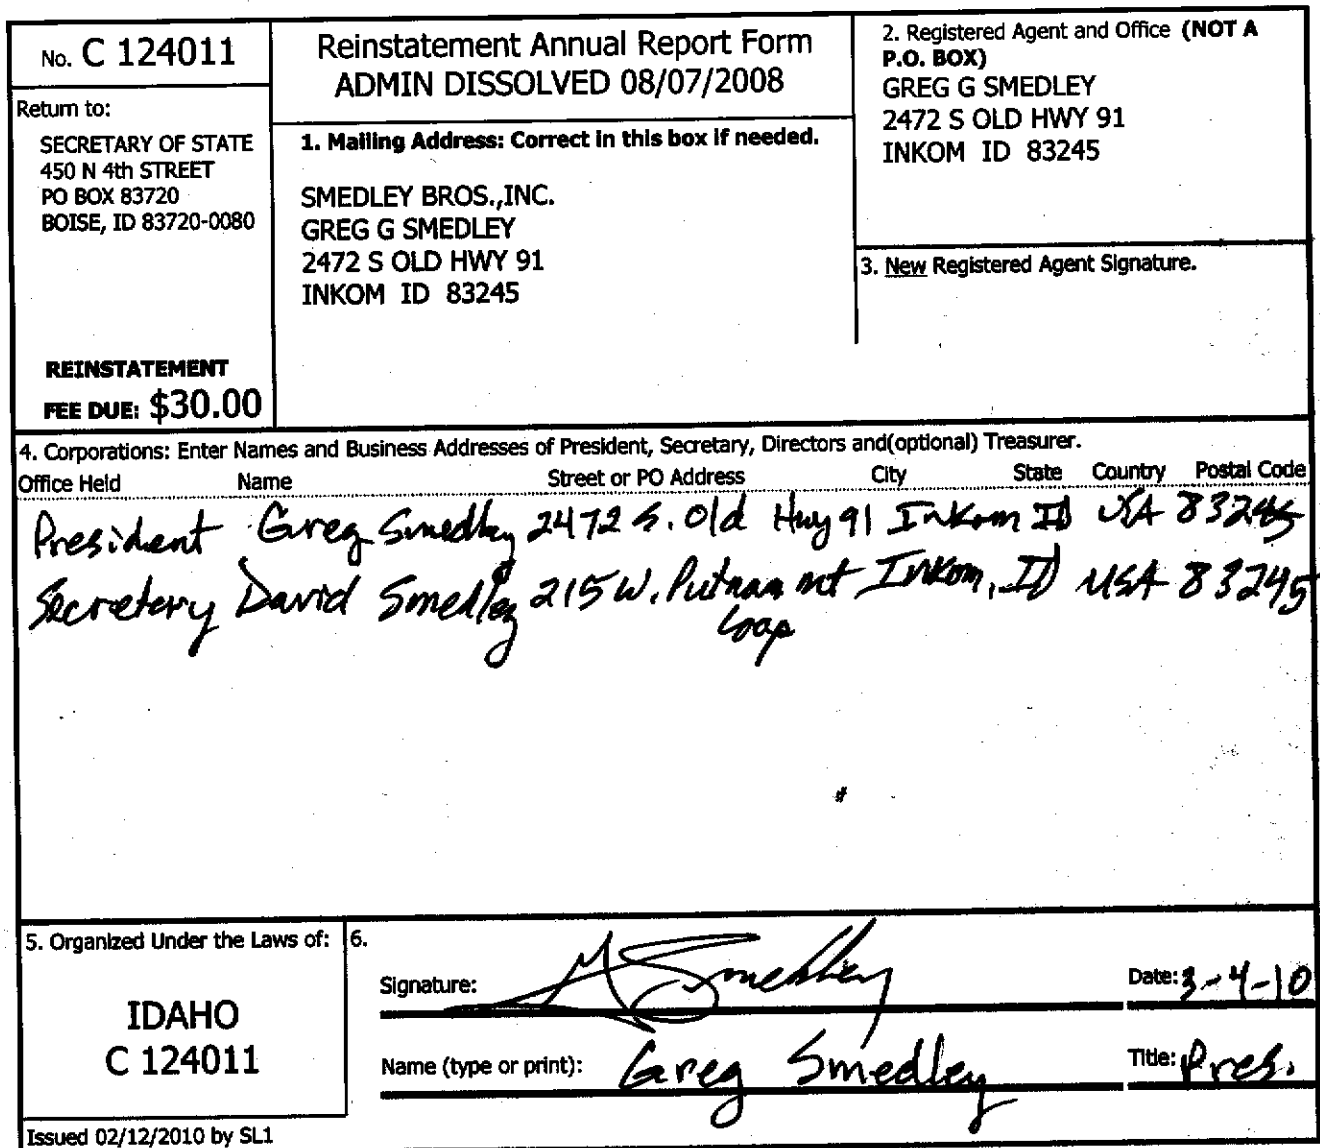 No. C 124011
Return to:
SECRETARY OF STATE
450 N 4th STREET
PO BOX 83720
BOISE, ID 83720-0080
REINSTATEMENT
FEE DUE: $30.00
Reinstatement Annual Report Form
ADMIN DISSOLVED 08/07/2008
1. Mailing Address: Correct in this box if needed.
SMEDLEY BROS.,INC.
GREG G SMEDLEY
2472 S OLD HWY 91
INKOM ID 83245
2. Registered Agent and Office (NOT A
P.O. BOX)
GREG G SMEDLEY
2472 S OLD HWY 91
INKOM ID 83245
3. New Registered Agent Signature.
4. Corporations: Enter Names and Business Addresses of President, Secretary, Directors and(optional) Treasurer.
Office Held Name Street or PO Address City State Country Postal Code
President Greg Smedley 2472 S. Old Hwy 91 Inkom ID USA 83245
Secretery David Smedley 215 W. Putnam mt Inkom, ID USA 83245
Loop
5. Organized Under the Laws of:
IDAHO
C 124011
Issued 02/12/2010 by SL1
6.
Signature: Smedley Date: 3-4-10
Name (type or print): Greg Smedley Title: Pres.